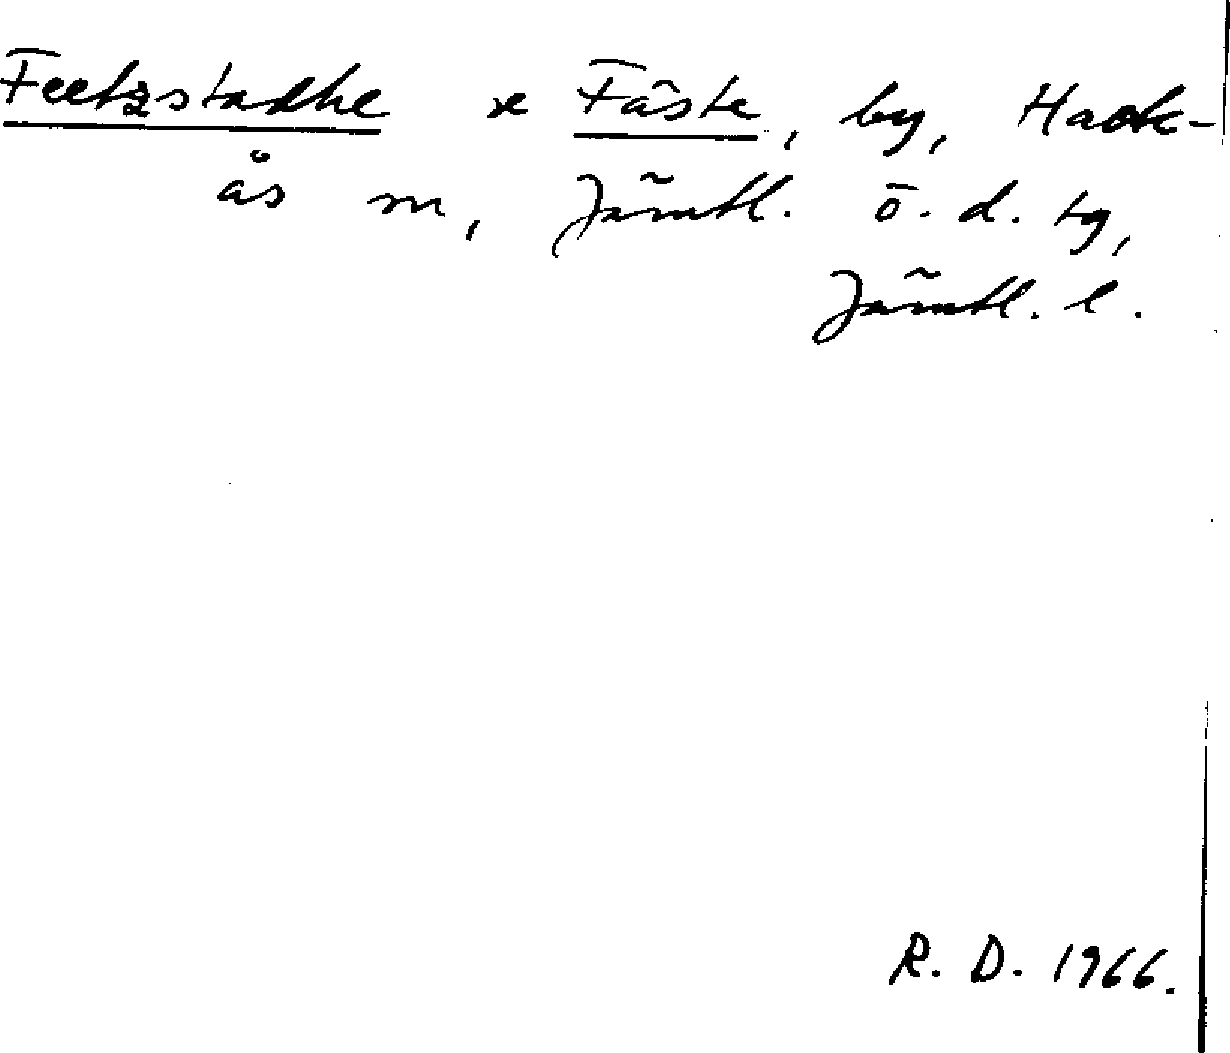 Feetzstadhe se Fäste, by, Hack-
ås sn, Jämtl. ö. d. tg,
Jämtl. l.
R. D. 1966.